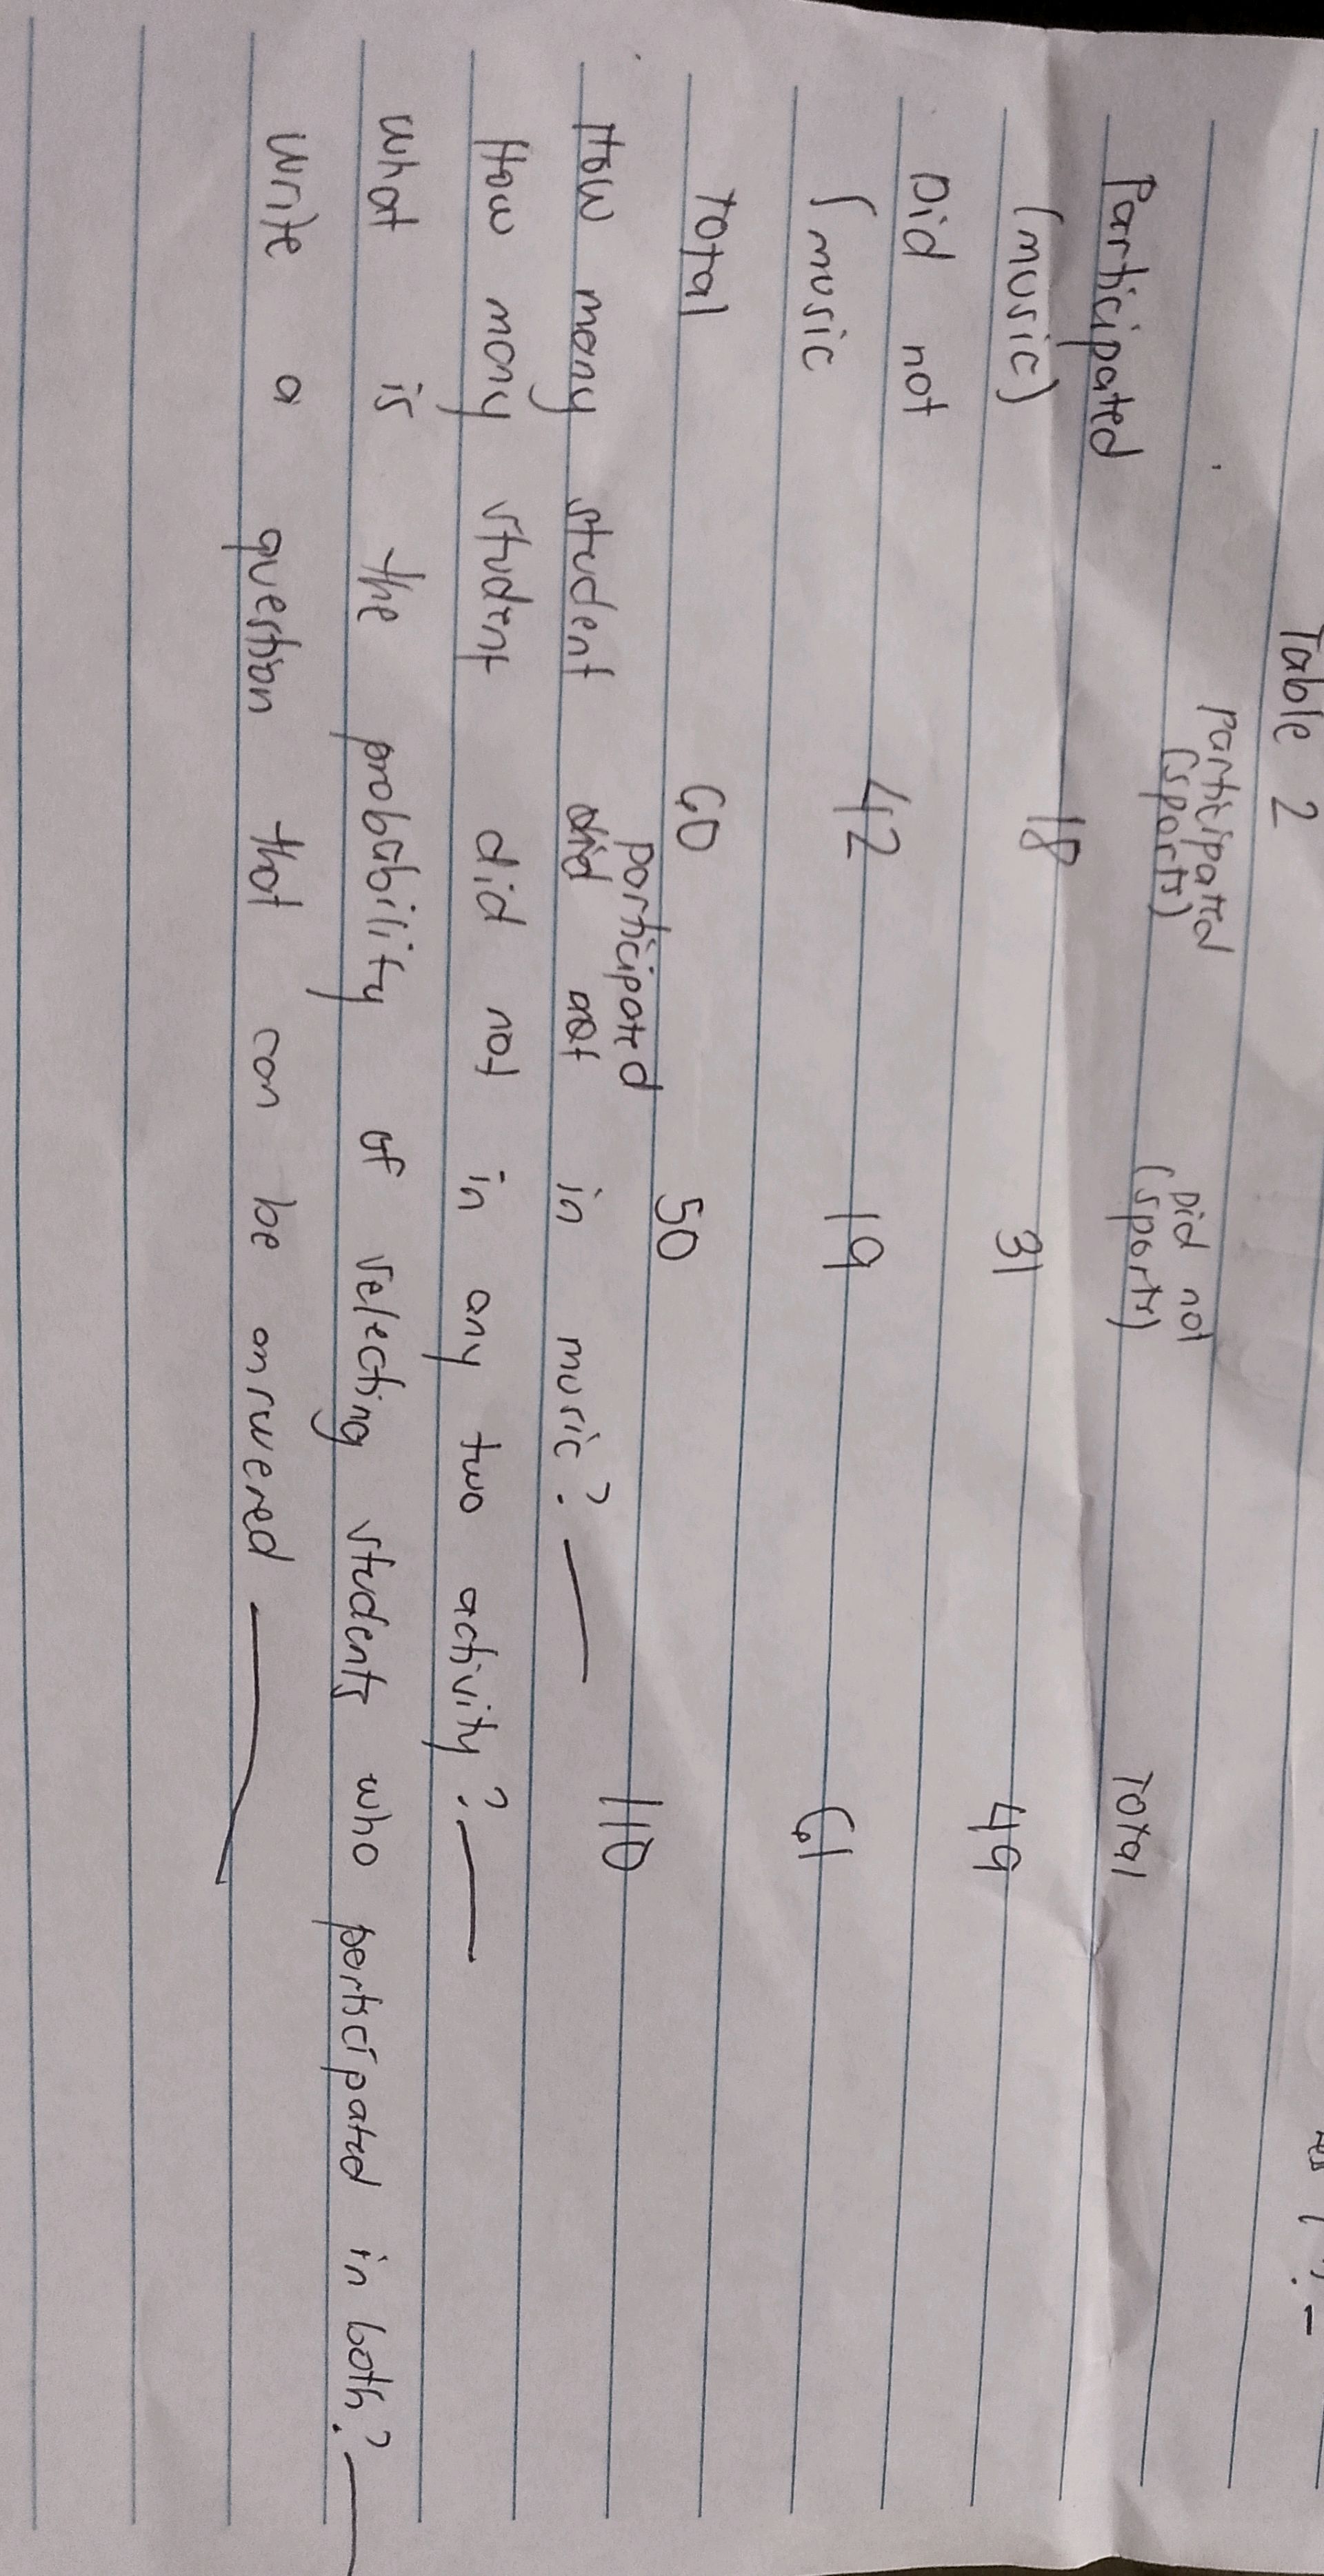 Table 2
Participated Did not Total
(sports) (sports)
Participated
(music) 18 31 49
Did not 42 19 61
(music
Total 60 50 110
participated
How many student did not in music?
How many student did not in any two activity?
What is the probability of selecting students who participated in both?
Write a question that can be answered